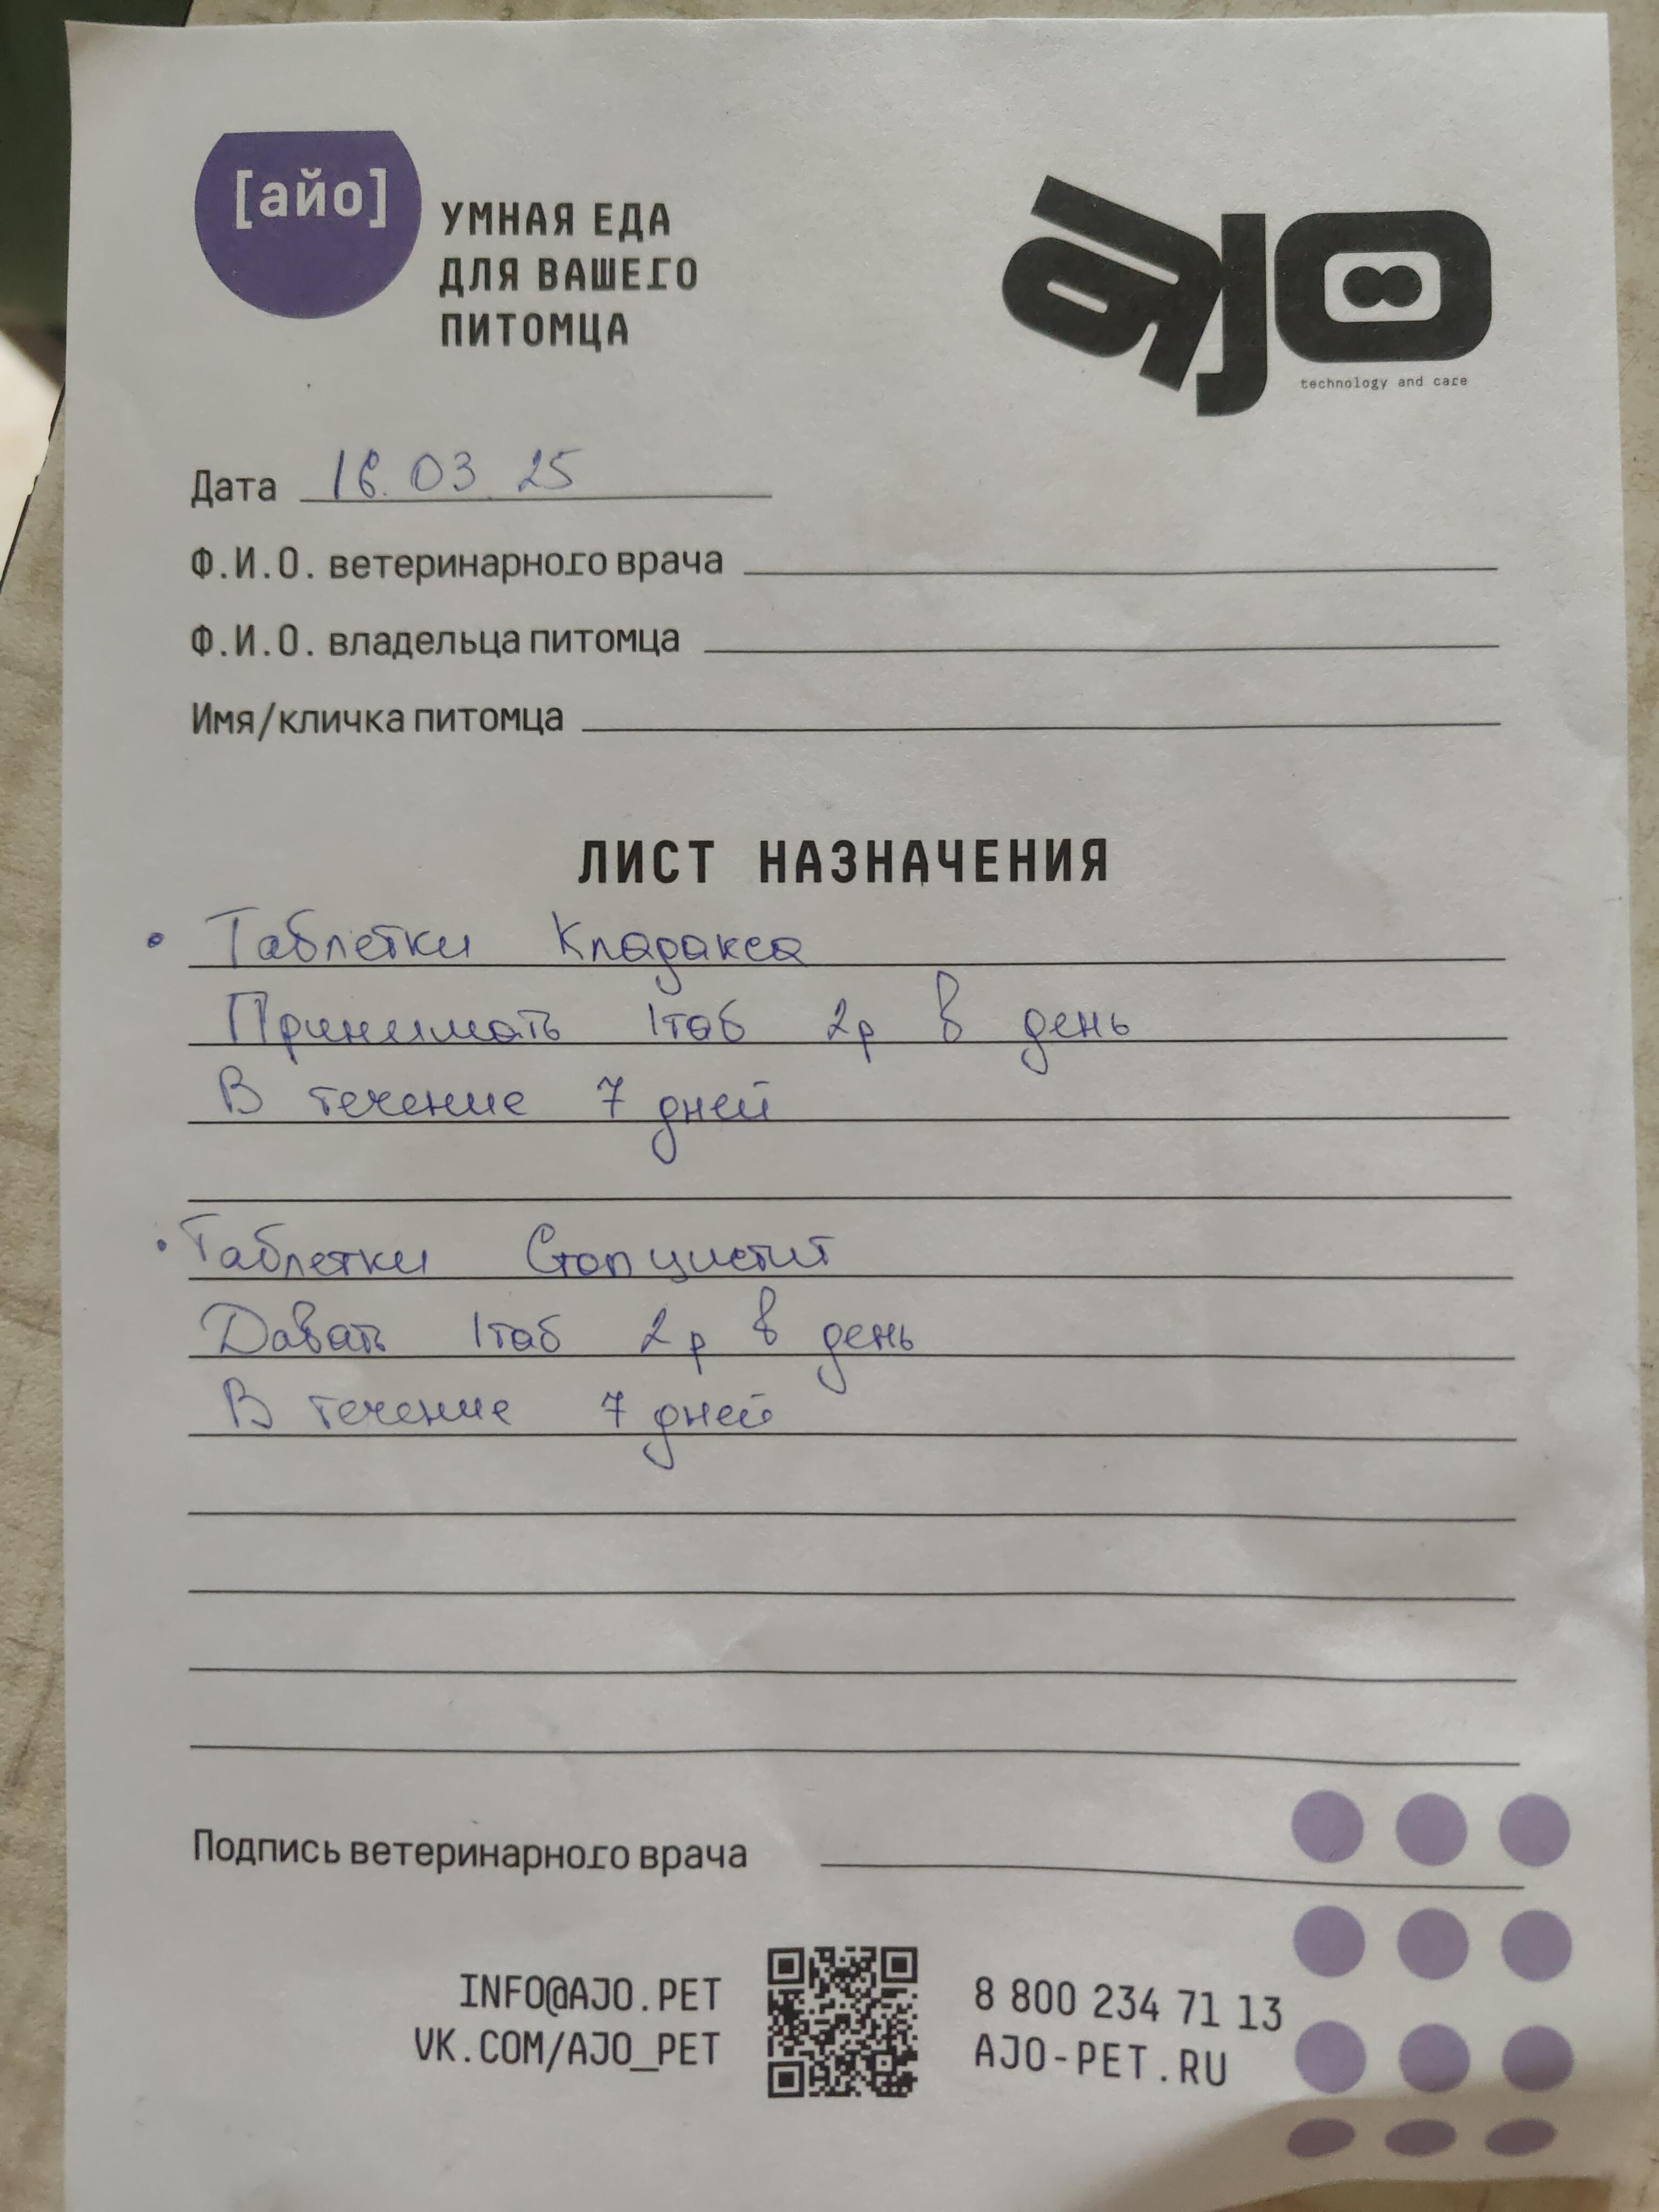 [айо]
УМНАЯ ЕДА
ДЛЯ ВАШЕГО
ПИТОМЦА
ajo
technology and care
Дата 16.03.25
Ф.И.О. ветеринарного врача
Ф.И.О. владельца питомца
Имя/кличка питомца
ЛИСТ НАЗНАЧЕНИЯ
• Таблетки Кладакса
Принимать 1таб 2р в день
В течение 7 дней
• Таблетки Стоп цистит
Давать 1таб 2р в день
В течение 7 дней
Подпись ветеринарного врача
INFO@AJO.PET
VK.COM/AJO_PET
8 800 234 71 13
AJO-PET.RU